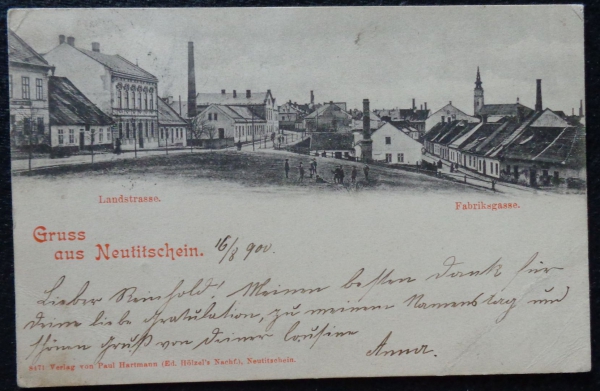 Landstrasse.
Fabriksgasse.
Gruss
aus Neutitschein. 16/8 900.
Lieber Reinhold! Meinen besten Dank für
deine liebe Gratulation, zu meinem Namenstag und
schönen Gruß von deiner Cousine
Anna.
8471 Verlag von Paul Hartmann (Ed. Hölzel's Nachf.), Neutitschein.